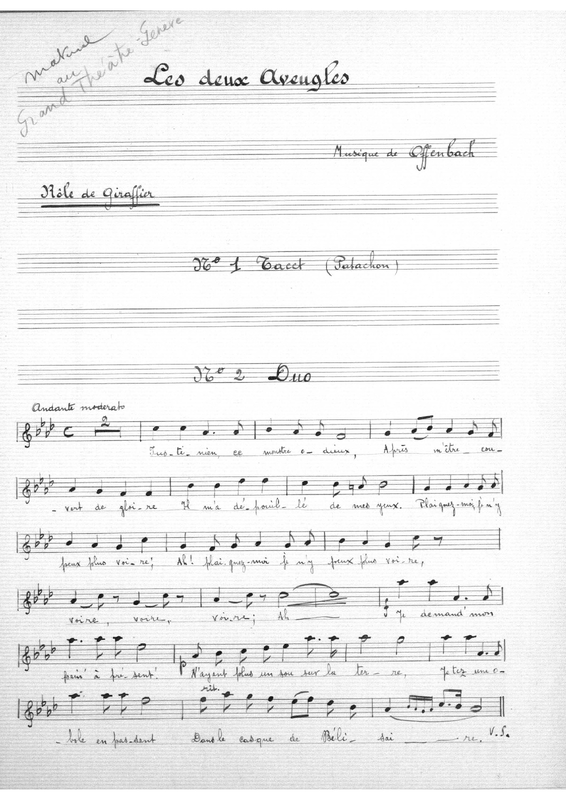 matériel
au
Grand Théâtre - Genève
Les deux Aveugles
Musique de Offenbach
Rôle de Giraffier
Nº 1 Tacet (Patachon)
Nº 2 Duo
Andante moderato
2
Jus-ti-nien ce monstre o-dieux, Après m'être cou-
-vert de gloi-re Il m'a dé-pouil-lé de mes yeux. Plaignez-moi je n'y
peux plus voi-re; Ah! plai-gnez-moi je n'y peux plus voi-re,
voire, voire, voi-re; Ah Je demand' mon
pain à pré-sent. N'ayent plus un sou sur la ter-re, Jetez une o-
rit.
bole en pas-sant Dans le casque de Béli-sai-re. V.S.